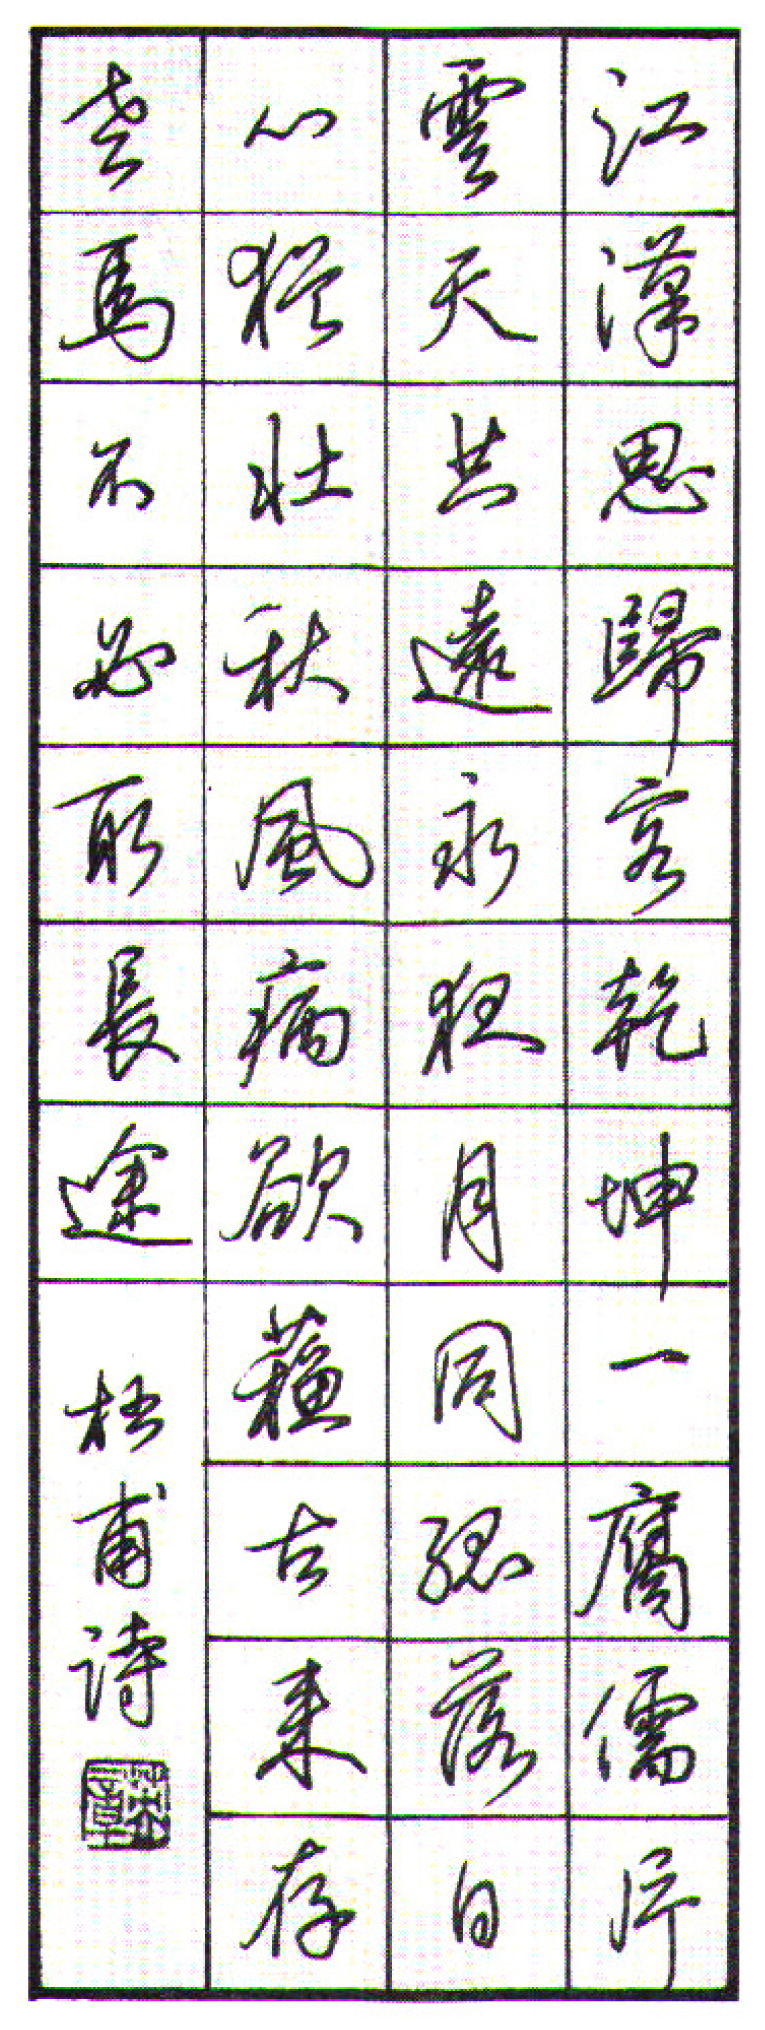 江漢思歸客乾坤一腐儒片
雲天共遠永狂月同孤落日
心猶壯秋風病欲蘇古來存
老馬不必取長途
杜甫詩